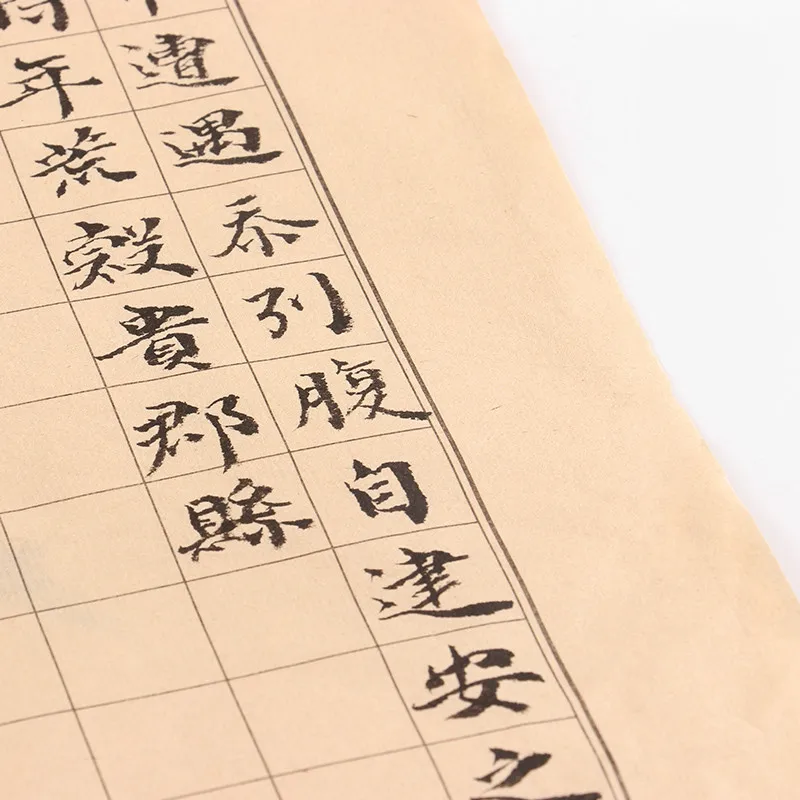 遭遇忝列腹自建安之
年荒穀貴郡縣